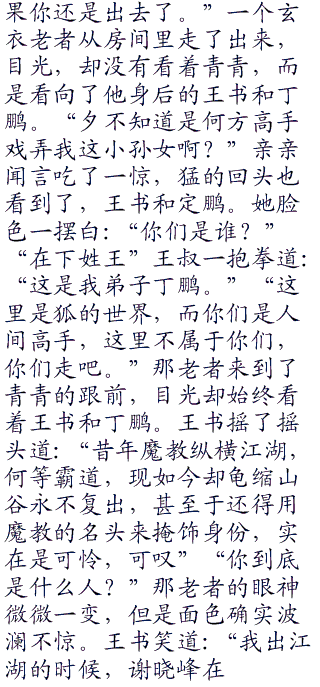 果你还是出去了。”一个玄
衣老者从房间里走了出来，
目光，却没有看着青青，而
是看向了他身后的王书和丁
鹏。“夕不知道是何方高手
戏弄我这小孙女啊？”亲亲
闻言吃了一惊，猛的回头也
看到了，王书和定鹏。她脸
色一摆白：“你们是谁？”
“在下姓王”王叔一抱拳道：
“这是我弟子丁鹏。”“这
里是狐的世界，而你们是人
间高手，这里不属于你们，
你们走吧。”那老者来到了
青青的跟前，目光却始终看
着王书和丁鹏。王书摇了摇
头道：“昔年魔教纵横江湖，
何等霸道，现如今却龟缩山
谷永不复出，甚至于还得用
魔教的名头来掩饰身份，实
在是可怜，可叹”“你到底
是什么人？”那老者的眼神
微微一变，但是面色确实波
澜不惊。王书笑道：“我出江
湖的时候，谢晓峰在